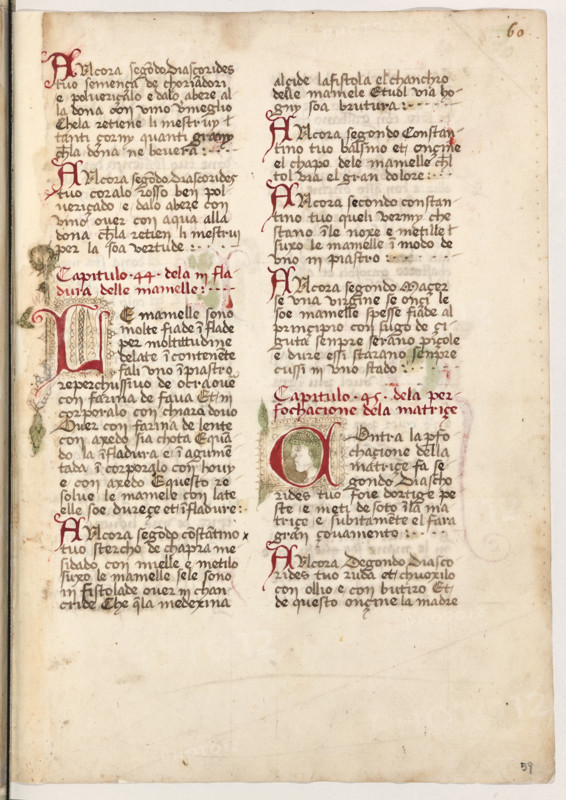 60
AVlcora segōdo Diascorides
tuo semença de choriadori
e polveriçalo e dalo abere al
la dona con vino vmeglio
Chela retiene li mestruy e
tanti çorny quanti grany
ch̄la dōna ne bevera :
AVlcora segōdo Diascorides
tuo coralo rosso ben pol
veriçado e dalo abere con
vino over con aqua alla
dona ch̄la retien li mestrui
per la soa vertude :
Capitulo · 44 · dela in fla
dura delle mamelle :
LE mamelle sono
molte fiade ī flade
per moltitudine
delate ī contenete
fali vno ī piastro
reperchussiuo de otra oue
con farina de faua Et in
corporalo con chiara douo
Ouer con farina de lente
con axedo sia chota Equā
do la īfladura e ī agumē
tada ī corporalo con houy
e con axedo Equesto re
solue le mamele con late
elle soe dureçe et īfladure :
AVlcora segōdo cōstātino
tuo stercho de chapra me
sidado con mielle e metilo
suxo le mamelle sele sono
in fistolade ouer in chan
cride Che q̄la medexina
alcide la fistola el chanchro
delle mamele Etuol via ho
gny soa brutura :
AVlcora segondo Constan
tino tuo balsmo et onçine
el chapo dele mamelle ch̄l
tol via el gran dolore :
AVlcora secondo constan
tino tuo queli vermy che
stano ī le noxe e metille
suxo le mamelle ī modo de
vno in piastro :
AVlcora segondo Maçer
se vna virgine se onçi le
soe mamelle spesse fiade al
principio con sugo de çi
guta sempre serano piçole
e dure essi starano sempre
cussi in vno stado :
Capitulo · 45 · dela per
fochacione dela matriçe
COntra la pfo
chacione della
matriçe fa se
gondo Diascho
rides tuo foie dortige pe
ste e meti de soto ī la ma
triçe e subitamēte el fara
gran çouamento :
AVlcora Segondo Diasco
rides tuo ruda et chuoxilo
con ollio e con butiro Et
de questo onçine la madre
59